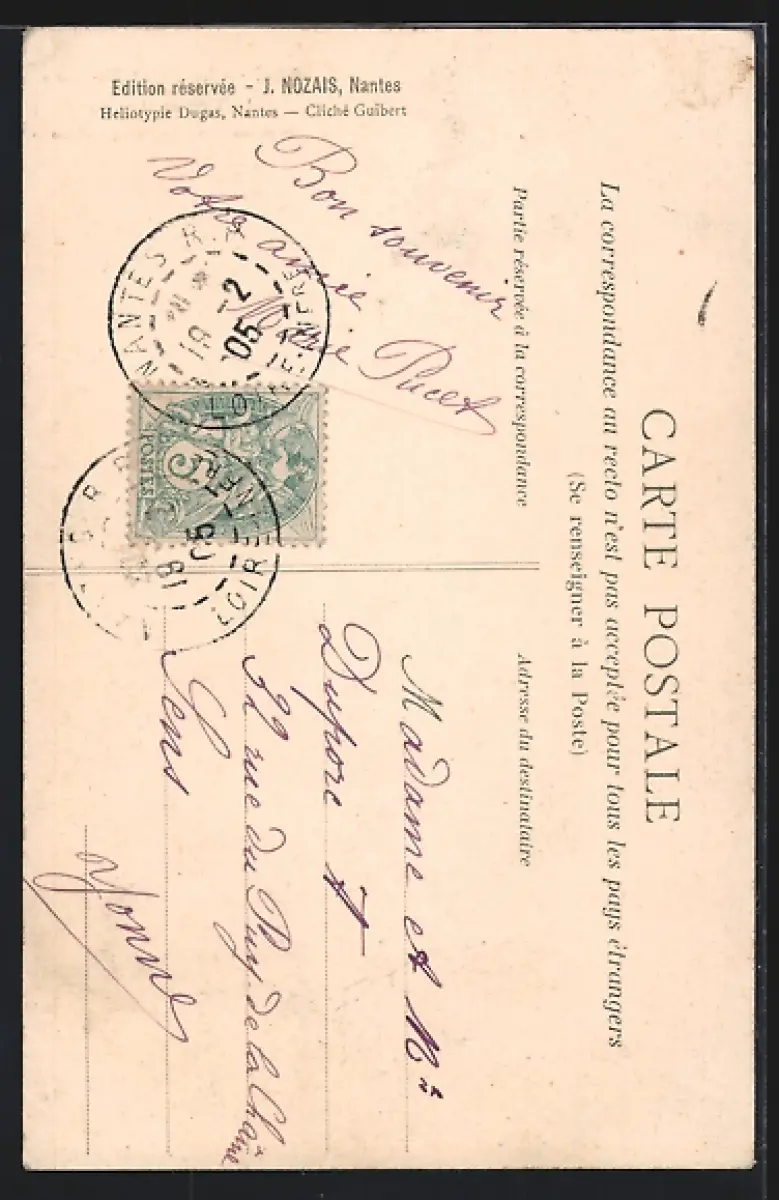 CARTE POSTALE
La correspondance au recto n'est pas acceptée pour tous les pays étrangers
(Se renseigner à la Poste)
Partie réservée à la correspondance
Adresse du destinataire
Bon souvenir
Votre amie
Marie
Madame et Mr
Dupore
32 rue du Puy de la Chaîne
Sens
Yonne
Edition réservée - J. NOZAIS, Nantes
Heliotypie Dugas, Nantes — Cliché Guibert
NANTES R.P.
18 -2
05
LOIRE-INFRE
5
POSTES
18
05
LOIRE-INFRE